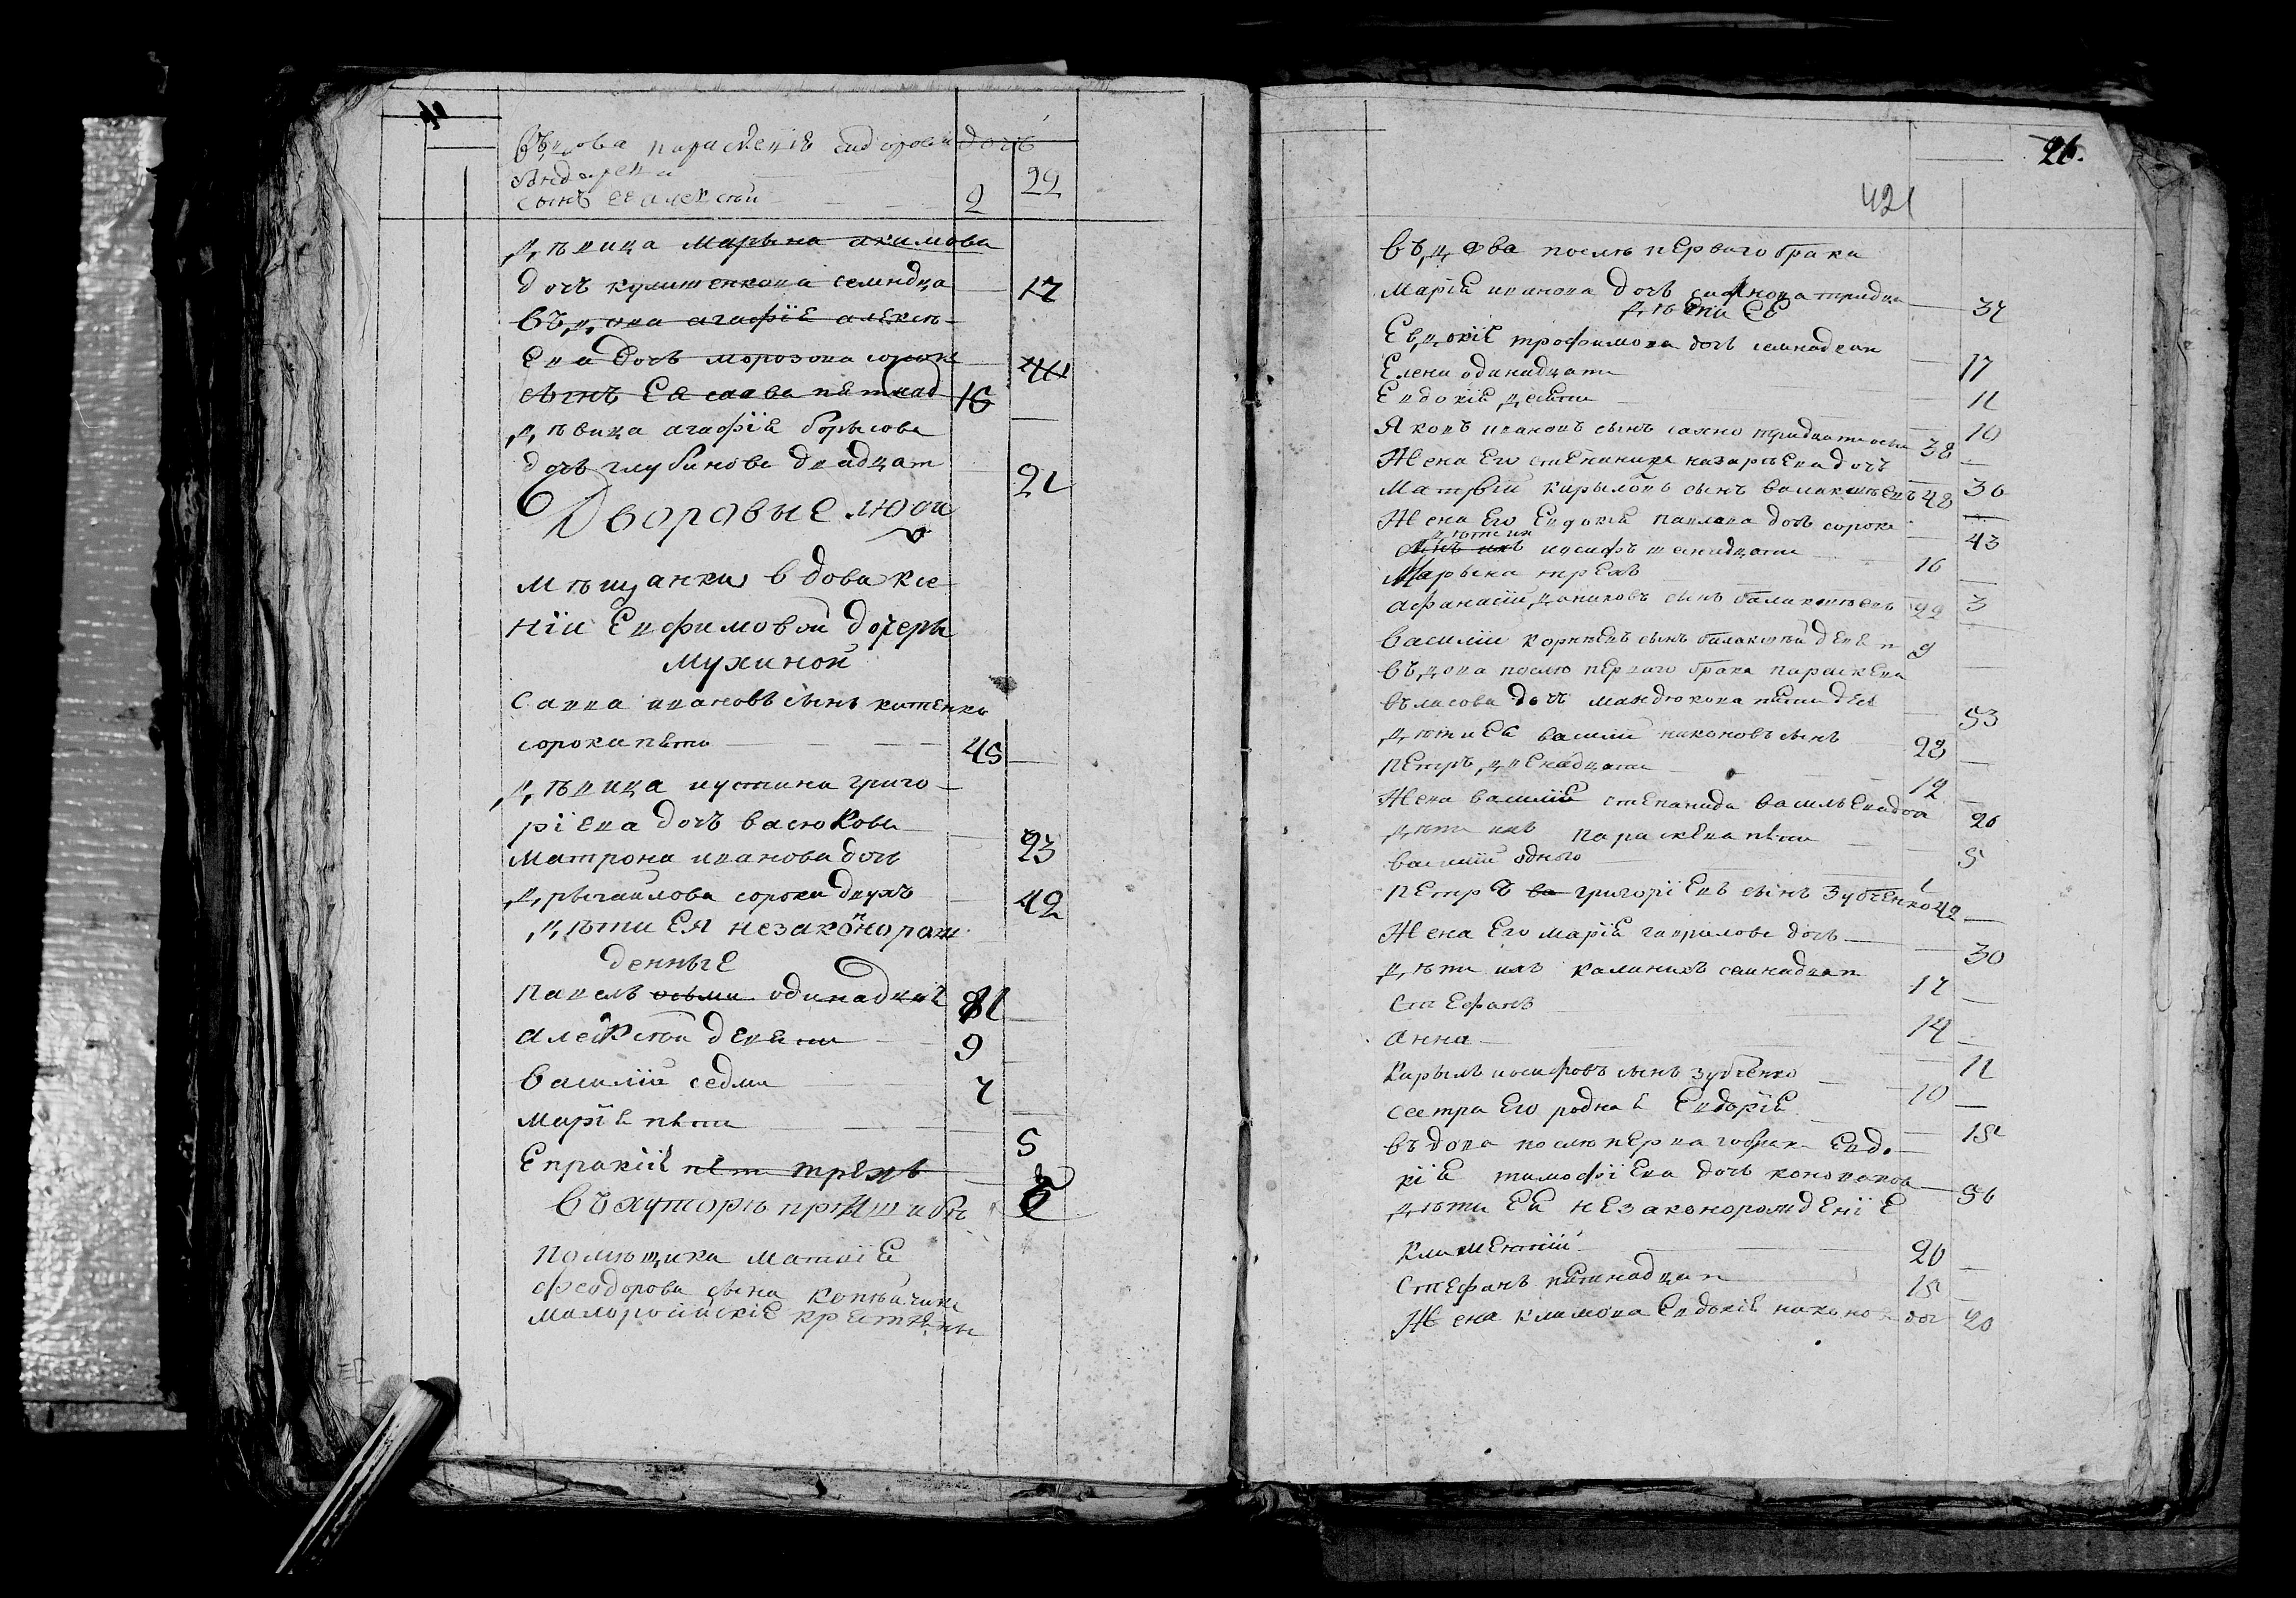 въдова параскевія сидорова дочъ
22
сынъ ея алексѣй 2
дѣвица марѣна акимова
дочъ кулишенкова семндца 17
въдова агафіѣ алексѣ
ева дочъ морозова сорокъ 40
сынъ Ея савва пятнад 16
дѣвица агафіѣ борысова
дочъ глубинова двадцат 21
Дворовые люди
мѣщанки вдовы ксе
ніи Евфимовой дочеры
мухиной
савва ивановъ сынъ китенко
сорокапяти 45
дѣвица иустина григо
ріева дочъ васюкова 23
матрона иванова дочъ
дрыгайлова сорокадвухъ 42
дѣти Ея незаконнорож
денные
павелъ осьми одинадцат 11
алексѣй девяти 9
василій седми 7
маріѣ пяти 5
Епракіѣ пят трехъ 3
въ хуторѣ пришибѣ
помѣщика матвіѣ
феодорова сына копѣйчика
малоросійскіе крестяны
26.
421
въдова послѣ перваго брака
маріѣ иванова дочъ тридца 37
дѣти Еѣ
Евдокіѣ трофимова дочъ семнадцати 17
Елена одинадцати 11
Евдокія десяти 10
Яковъ ивановъ сынъ сахно тридцатьосми 38
Жена Его степанида назарѣева дочъ 36
матвѣй кирыловъ сынъ балаклѣецъ 48
Жена Его Евдокія павлова дочъ сорокъ 43
дѣти их
сынъ ихъ иосифъ шеснадцати 16
марына трехъ 3
афанасій даниловъ сынъ балаклѣецъ 22
василій корнѣевъ сынъ балаклѣй девят 9
въдова послѣ перваго брака параскева
власова дочъ мандюкова пятидес 53
дѣти Еѣ василій никоновъ сынъ 28
петръ двенадцати 12
Жена василіѣ степанида васильева доч 26
дѣти ихъ параскева пяти 5
василій одного 1
петръ ва григоріевъ сынъ зубченко 42
Жена Его маріѣ гаврилова дочъ 30
дѣти ихъ калиникъ семнадцат 17
стефанъ 14
анна 11
Кирылъ иосифовъ сынъ зубченко 10
сестра Его родная Евдокіѣ 15
въдова послѣ перваго брака Евдо
кіѣ тимофіева дочъ коновалова 56
дѣти Еѣ незаконорожденіе
климентій 20
стефанъ пятнадцат 15
Жена климова Евдокіѣ никонов доч 20